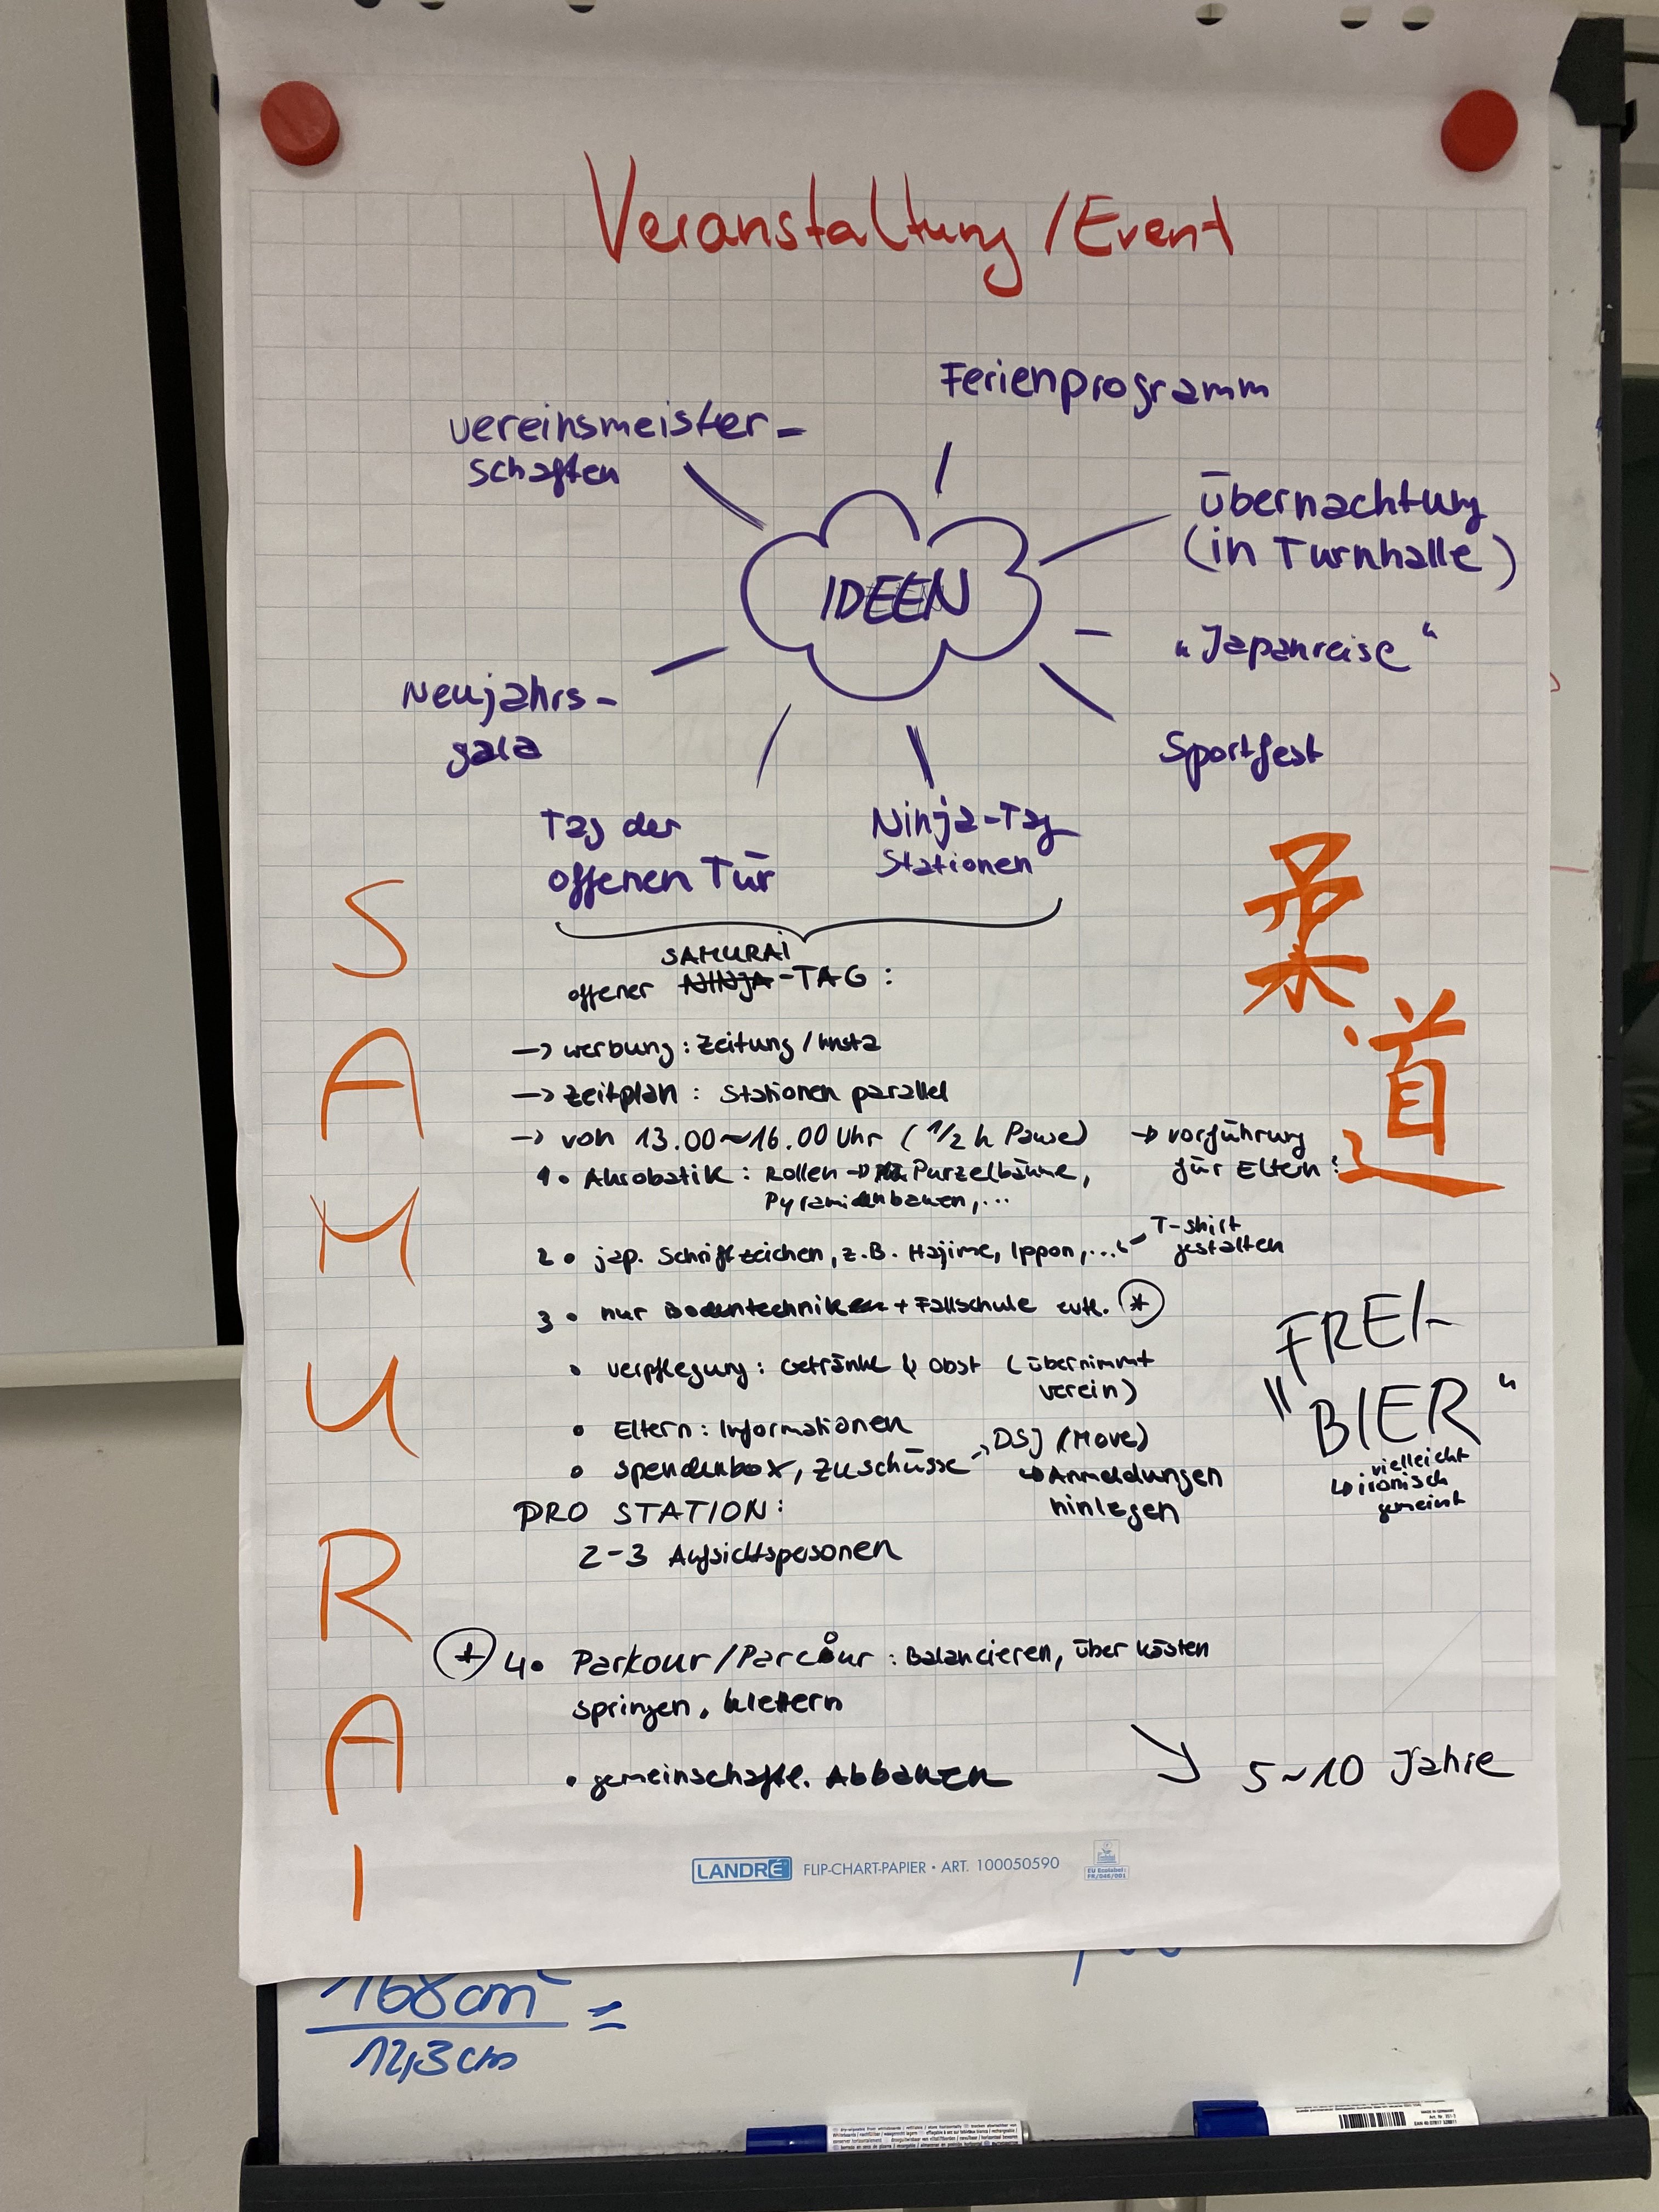 Veranstaltung/Event
Ferienprogramm
Vereinsmeister-
schaften
Übernachtung
(in Turnhalle)
IDEEN
"Japanreise"
Neujahrs-
gala
Sportfest
Tag der
offenen Tür
Ninja-Tag
Stationen
SAMURAI
柔道
SAMURAI
offener NINJA-TAG:
-> Werbung: Zeitung/Insta
-> Zeitplan: Stationen parallel
-> von 13.00~16.00 Uhr (1/2 h Pause)
-> Vorführung
für Eltern!
1. Akrobatik: Rollen -> Purzelbäume,
Pyramidenbauen,...
2. jap. Schriftzeichen, z.B. Hajime, Ippon,...
T-shirt
gestalten
3. nur Bodentechniken + Fallschule evtl. *
• Verpflegung: Getränke & Obst (übernimmt
Verein)
• Eltern: Informationen
• Spendenbox, Zuschüsse
-> DSJ (Move)
↳ Anmeldungen
hinlegen
PRO STATION:
2-3 Aufsichtspersonen
FREI-
"BIER"
↳ vielleicht
ironisch
gemeint
* 4. Parkour/Parcour: Balancieren, über Kästen
springen, klettern
• gemeinschaftl. Abbauen
5~10 Jahre
LANDRÉ FLIP-CHART-PAPIER • ART. 100050590
EU Ecolabel:
FR/046/001
168cm²
12,3cm
=